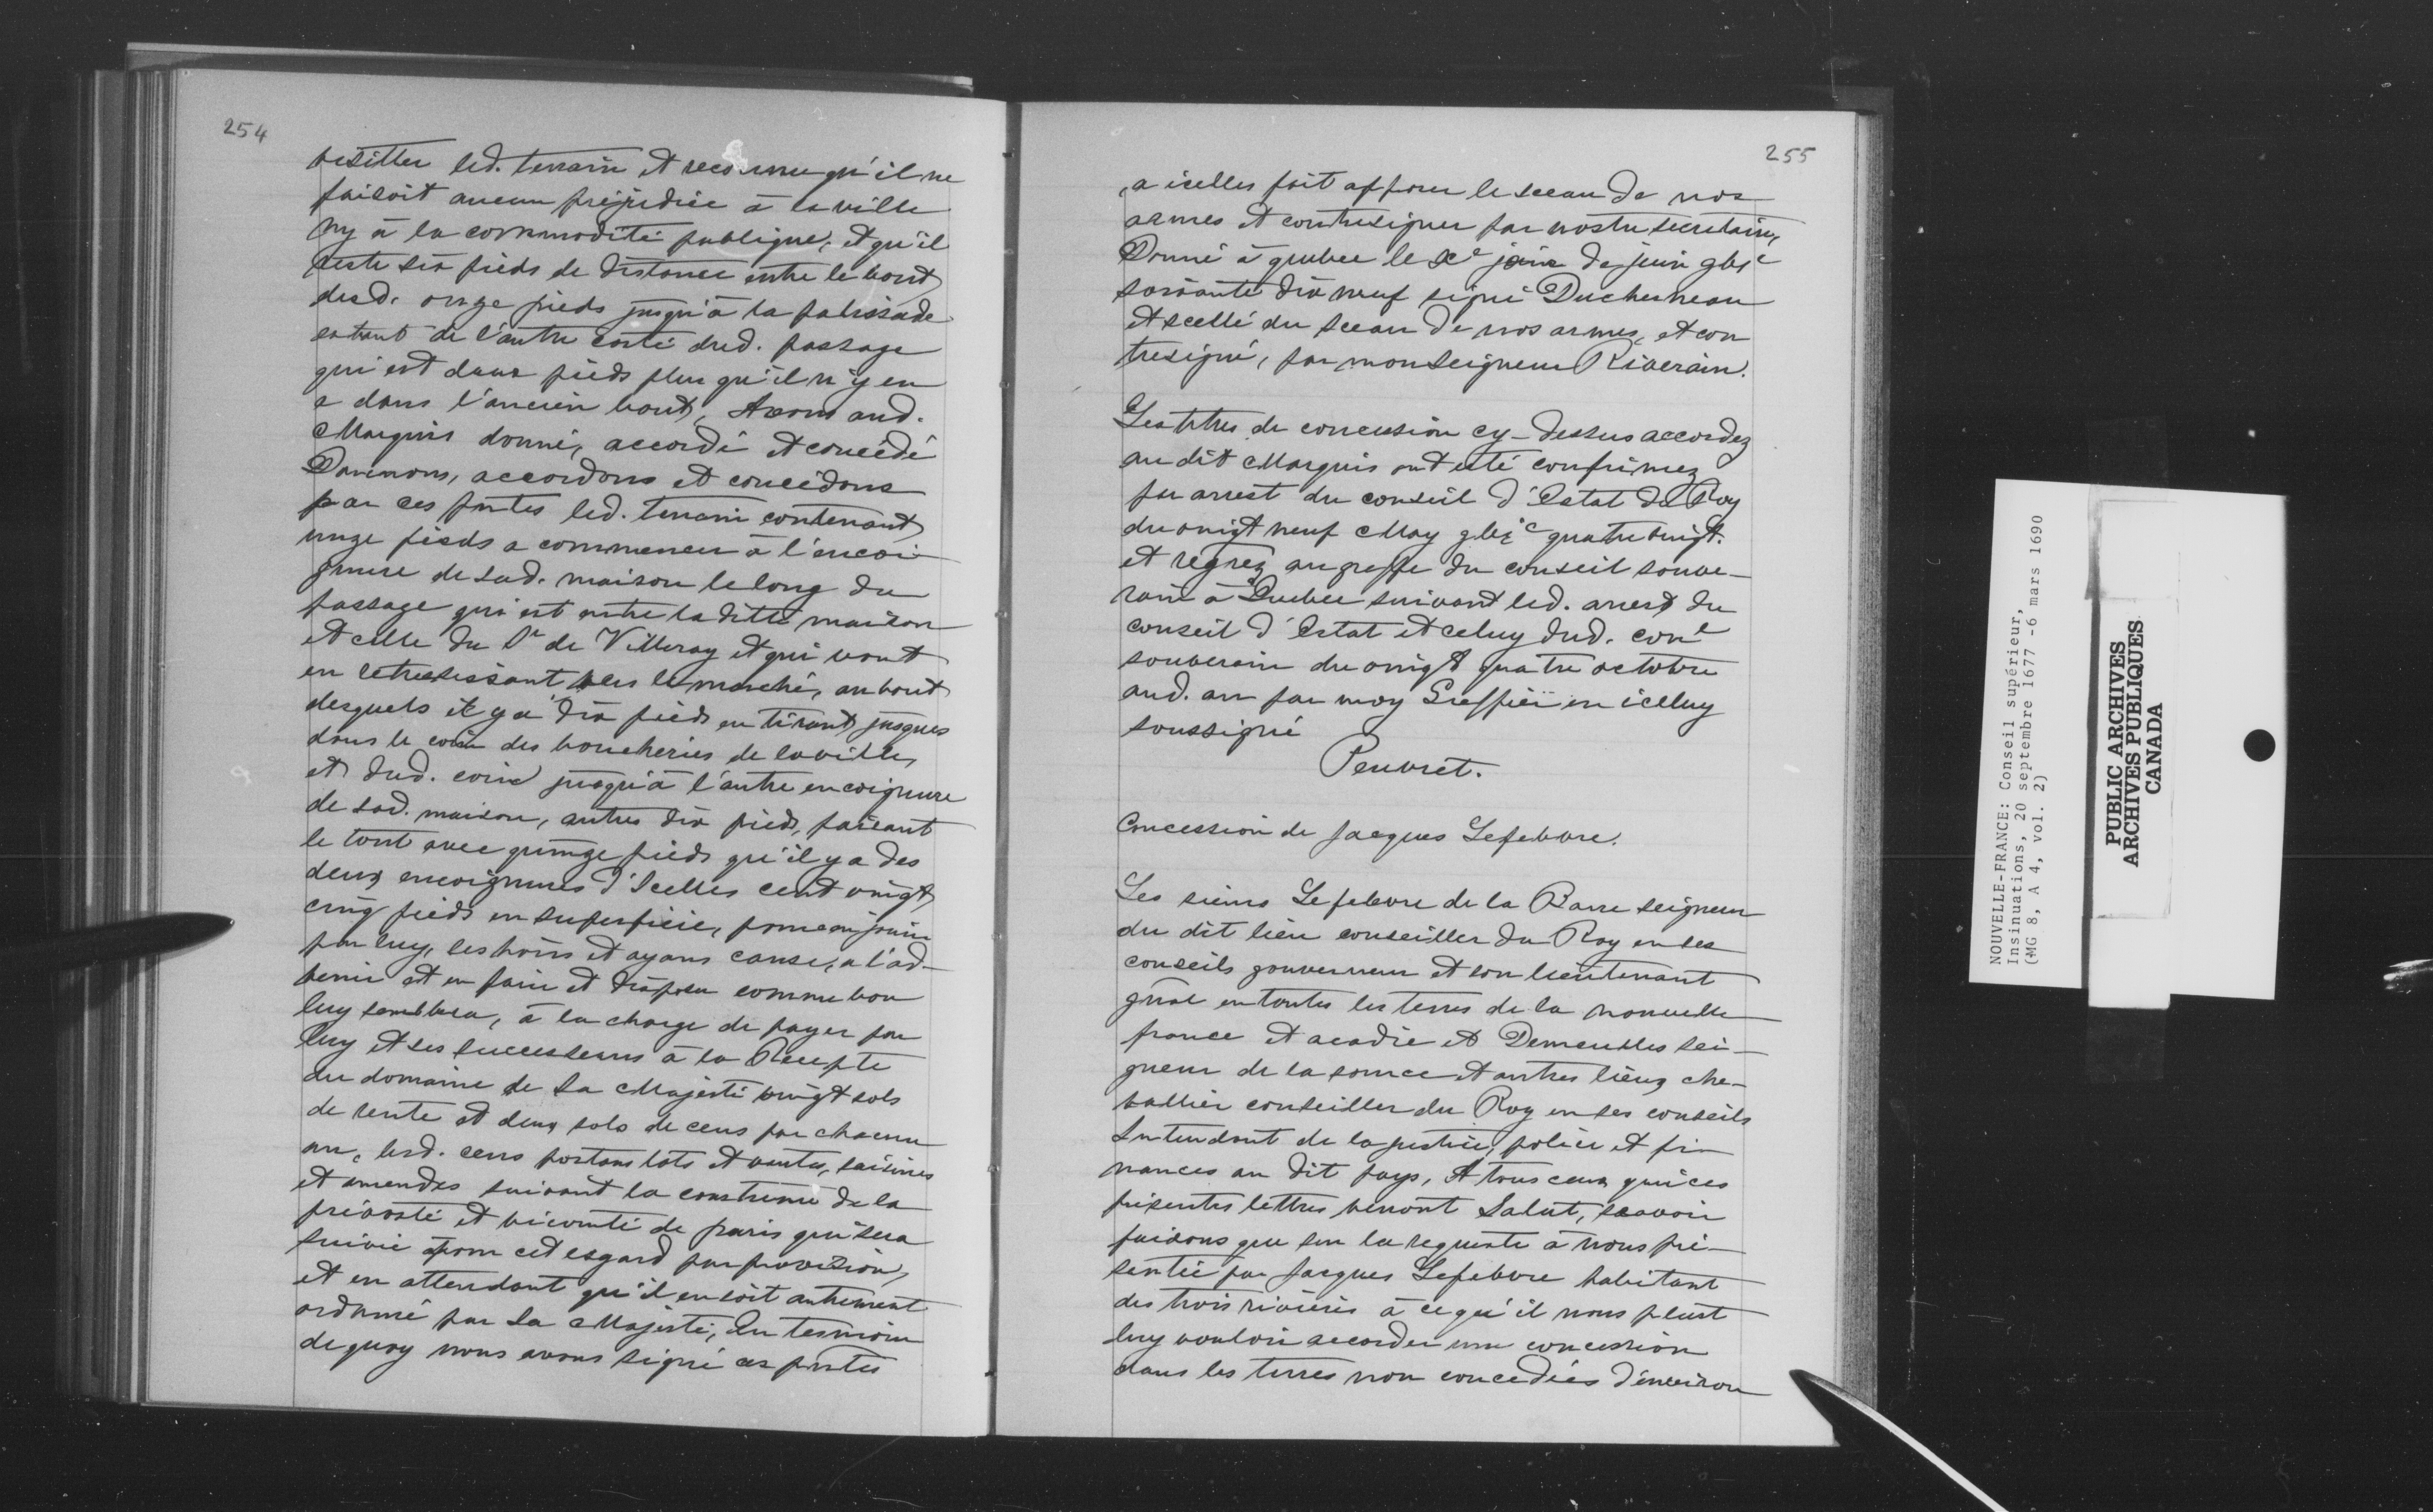 254
visitter led. terrain et reconnu qu'il ne
faisoit aucun préjudice à la ville
ny à la commodité publique, et qu'il
reste six pieds de distance entre le bout
desd. onze pieds jusqu'à la palissade
estant de l'autre costé dud. passage
qui est deux pieds plus qu'il n'y en
a dans l'ancien bout, Avons aud.
Marquis donné, accordé et concédé
Donnons, accordons et concédons
par ces pntes led. terrain contenant
unze pieds a commencer à l'encoi-
gnure de sad. maison le long du
passage qui est entre la ditte maison
et celle du Sr de Villeray et qui vont
en retressissant vers le marché, au bout
desquels il y a dix pieds en tirant jusques
dans le coin des boucheries de la ville,
et dud. coin jusqu'à l'autre encoignure
de sad. maison, autres dix pieds, faisant
le tout avec quinze pieds qu'il y a des
deux encoignures d'Icelles cent vingt
cinq pieds en superficie, pour en jouir
par luy, ses hoirs et ayans cause, a l'ad-
venir et en faire et disposer comme bon
luy semblera, à la charge de payer par
luy et ses successeurs à la Recepte
du domaine de Sa Majesté vingt sols
de rente et deux sols de cens par chacun
an, lesd. cens portans lots et ventes, saisines
et amendes suivant la coustume de la
prévosté et vicomté de paris qui sera
suivie pour cet esgard par provision,
et en attendant qu'il en soit autrement
ordonné par Sa Majesté, En tesmoin
de quoy nous avons signé ces pntes
255
a icelles fait apposer le sceau de nos
armes et contresigner par nostre secretaire,
Donné à quebec le Xe de juin gbic
soixante dix neuf signé Duchesneau
et scellé du sceau de nos armes, et con
tresigné, par monseigneur Riverain.
Les titres de concession cy-dessus accordez
au dit Marquis ont esté confirmez
par arrest du conseil d'Estat du Roy
du vingt neuf May gbic quatre vingt.
et regrez au greffe du conseil souve-
rain à Quebec suivant led. arrest du
conseil d'Estat et celuy dud. conl
souverain du vingt quatre octobre
aud. an par moy Greffier en icelluy
soussigné
Peuvret.
Concession de Jacques Lefebvre.
Les sieurs Lefebvre de la Barre seigneur
du dit lieu conseiller du Roy en ses
conseils gouverneur et son lieutenant
gnal en toutes les terres de la nouvelle
france et acadie et Demeulles sei-
gneur de la source et autres lieux che-
vallier conseiller du Roy en ses conseils
Intendant de la justice, police et fi-
nances au dit pays, A tous ceux qui ces
présentes lettres verront Salut, scavoir
faisons que sur la requeste à nous pré-
sentée par Jacques Lefebvre habitant
des trois rivières à ce qu'il nous pleust
luy vouloir accorder une concession
dans les terres non concédées d'environ
NOUVELLE-FRANCE: Conseil supérieur,
Insinuations, 20 septembre 1677 -6 mars 1690
(MG 8, A 4, vol. 2)
PUBLIC ARCHIVES
ARCHIVES PUBLIQUES
CANADA